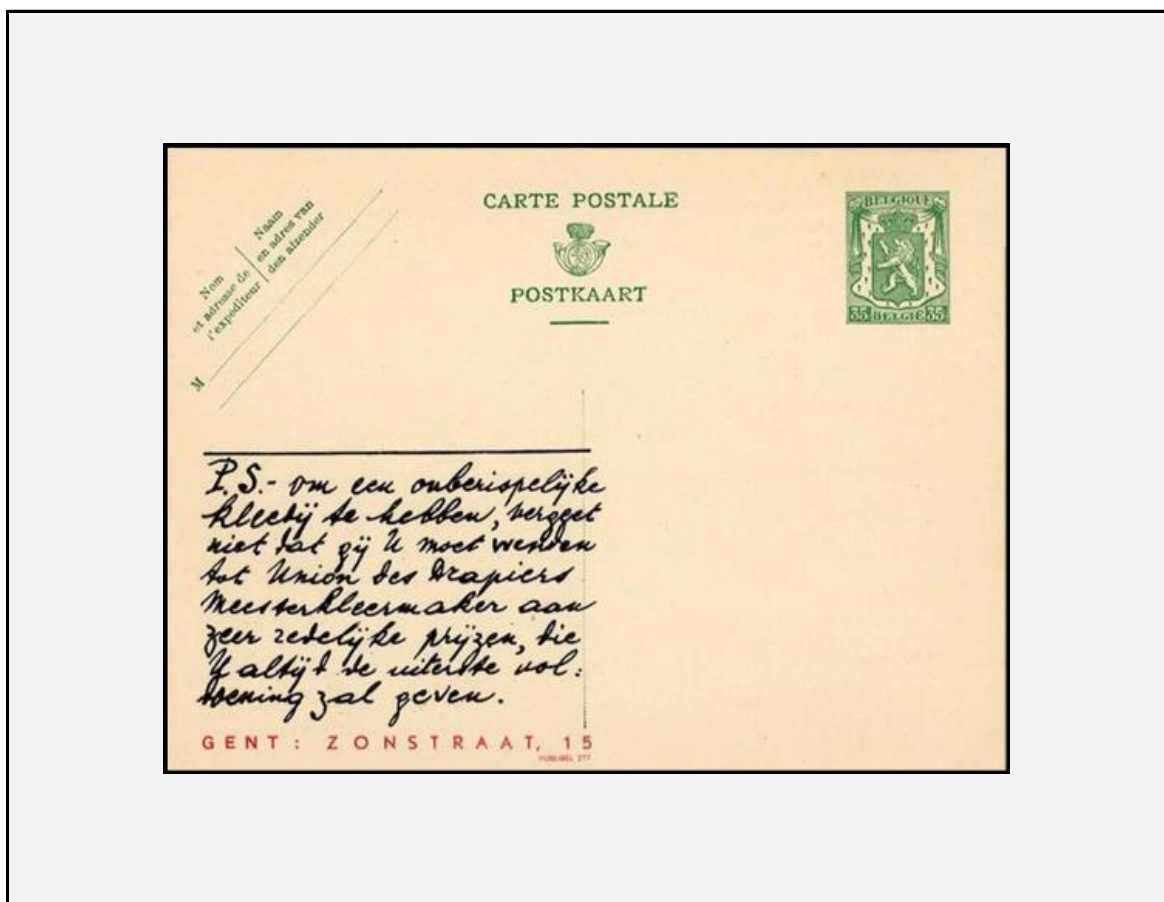 CARTE POSTALE
POSTKAART
Nom
et adresse de
l'expéditeur
Naam
en adres van
den afzender
M
BELGIQUE
35 BELGIË 35
P.S.- om een onberispelijke
kleedij te hebben, vergeet
niet dat gij U moet wenden
tot Union des Drapiers
Meesterkleermaker aan
zeer redelijke prijzen, die
U altijd de uiterste vol:
doening zal geven.
GENT: ZONSTRAAT, 15
PUBLIBEL 277